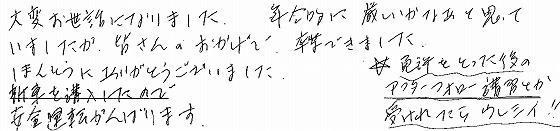 大変お世話になりました。 年令的に厳しいかなあと思って
いましたが、皆さんのおかげで、卒業できました。
ほんとうにありがとうございました。
新車を購入したので
安全運転がんばります。
※免許をとった後の
アフターフォロー講習とか、
受けれたらウレシイ!!